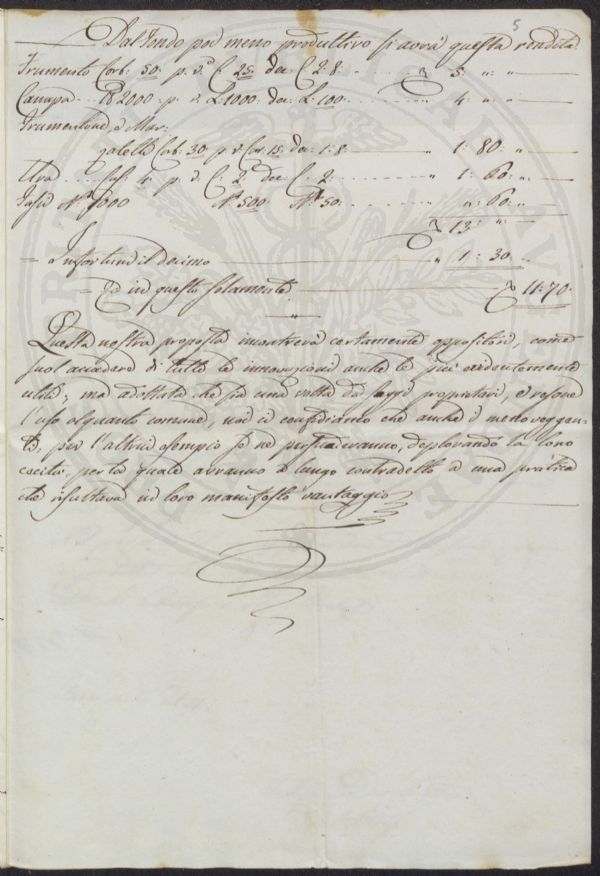 5
Dal Fondo poi meno produttivo si avrà questa rendita
Frumento Corb: 50: p. v.° C. 25: dec: C. 2: 8 5: „ „
Canapa 2000: p. v. L. 1000: dec: L: 100: „ 4: „ „
Frumentone o Mar:
zatelli Corb: 30 p. v. Cor. 15: dec: 1: 8 „ 1: 80: „
Uva 4 p. v. C. 2: dec C. 2: „ 1: 60: „
Fasci N.° 1000 N.° 500 N.° 50: „ „: 60:
13: „
Infortuni il decimo „ 1: 30
Ed in questo solamente 11: 70:
Questa nostra proposta incontrerà certamente oppositori, come
suol accadere di tutte le innovazioni anche le più evidentemente
utili; ma adottata che sia una volta da saggi proprietari, e resone
l'uso alquanto comune, noi ci confidiamo che anche i meno veggen-
ti, per l'altrui esempio se ne persuaderanno, deplorando la loro
cecità, per la quale avranno a lungo contradetto a una pratica
che risultava in loro manifesto vantaggio